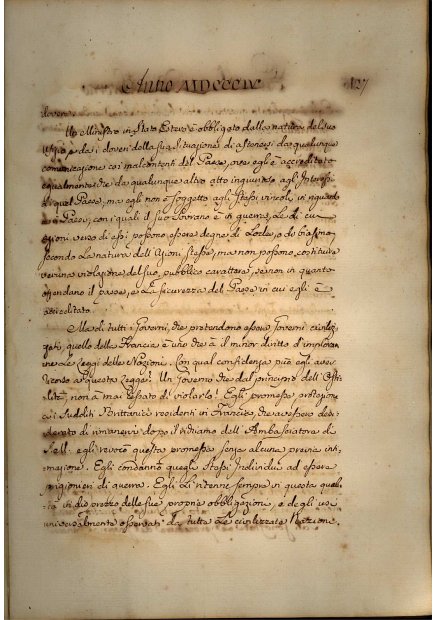 Anno MDCCCIV 127
dovere.
Un Ministro in Stato Estero è obbligato dalla natura del suo
Uffizio e da i doveri della sua situazione di astenersi da qualunque
comunicazione coi malcontenti del Paese, ove egli è accreditato
egualmente che da qualunque altro atto ingiurioso agli Interessi
di quel Paese, ma egli non è soggetto agli stessi vincoli, in riguardo
a Paesi, con i quali il suo Sovrano è in guerra. Le di cui
azioni verso di essi possono essere degne di Lode, o di biasimo
secondo La natura dell'Azioni stesse, ma non possono costituire
veruna violazione del suo pubblico carattere, se non in quanto
offendano il paese, e La sicurezza del Paese in cui egli è
accreditato.
Ma di tutti i Governi, che pretendono essere Governi civiliz-
zati, quello della Francia è uno che à il minor diritto d'implora-
re Le Leggi delle Nazioni. Con qual confidenza può egli avan-
zarsi a questa Legge! Un Governo che dal principio dell'Osti-
lità, non à mai cessato di violarlo! Egli promesse protezione
ai Sudditi Brittanici residenti in Francia, che avessero desi-
derato di rimanervi dopo il richiamo dell'Ambasciatore di
S. M. egli revocò questa promessa senza alcuna previa inti-
mazione: Egli condannò quegli stessi Individui ad essere
prigionieri di guerra. Egli Li ritenne sempre in questa quali-
tà in disprezzo delle sue proprie obbligazioni, e degli usi
universalmente osservati da tutte Le civilizzate Nazioni.